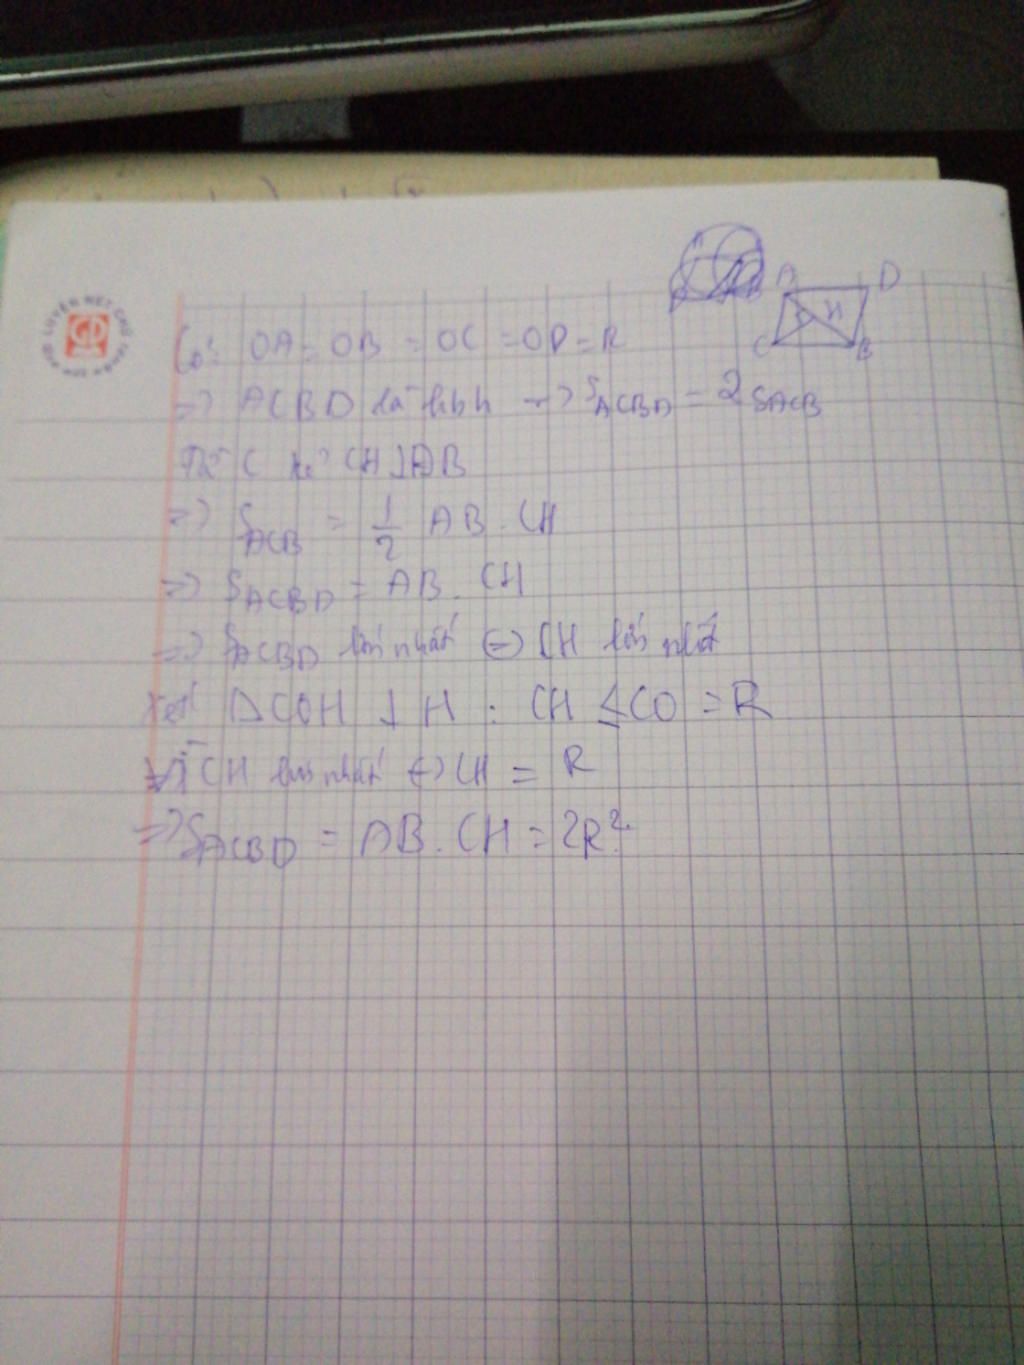 A D
H
C B
Có: OA = OB = OC = OD = R
=> ACBD là hbh => S_ACBD = 2 S_ACB
Từ C kẻ CH ⊥ AB
=> S_ACB = 1/2 AB . CH
=> S_ACBD = AB . CH
=> S_ACBD lớn nhất <=> CH lớn nhất
Xét Δ COH ⊥ H : CH ≤ CO = R
CH lớn nhất <=> CH = R
=> S_ACBD = AB . CH = 2R².
LUYỆN NÉT CHỮ